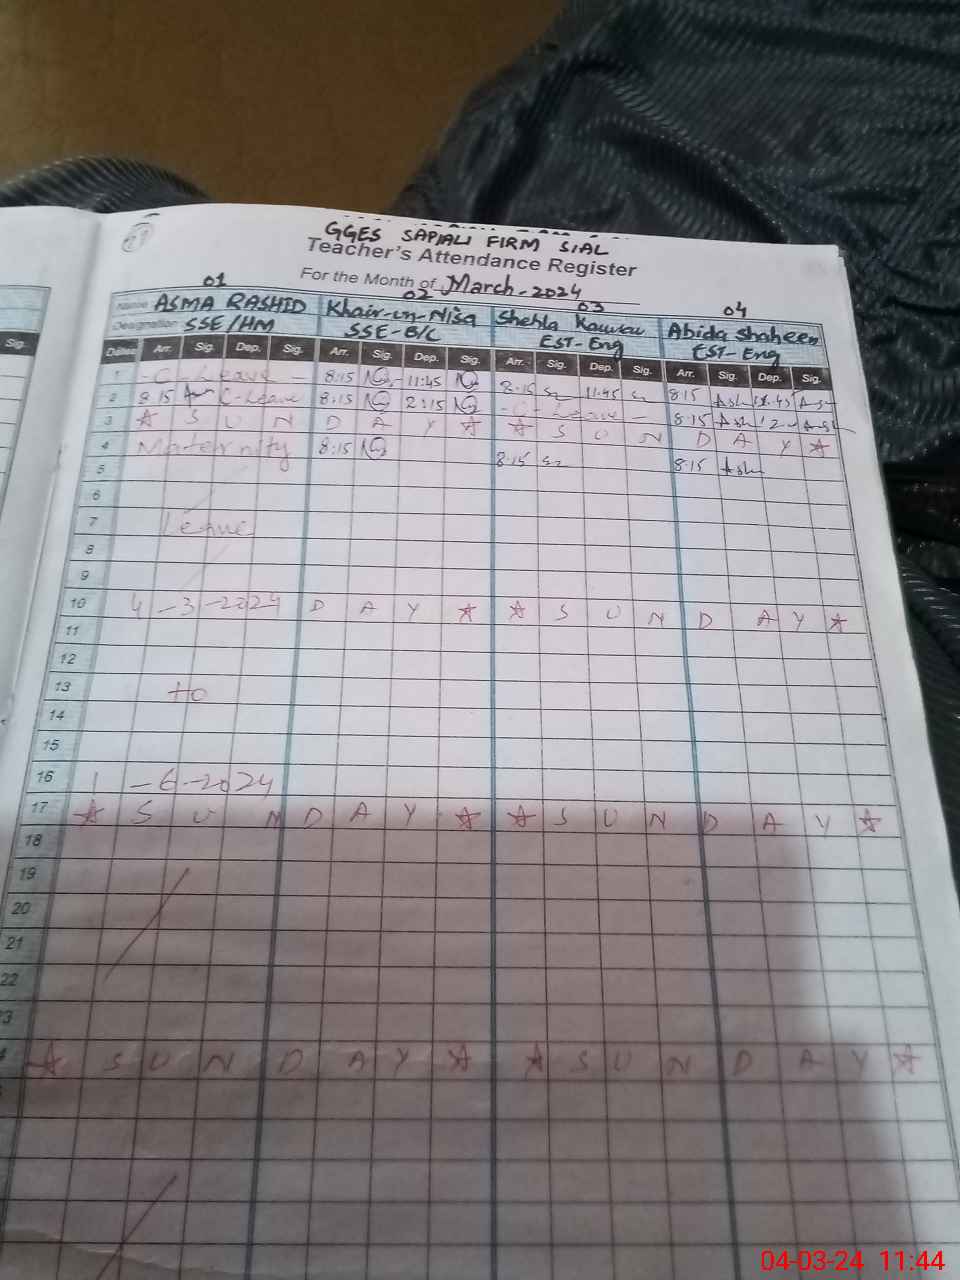 29
GGES SAPIALI FIRM SIAL
Teacher's Attendance Register
For the Month of March-2024
01 02 03 04
Name ASMA RASHID Khair-un-Nisa Shehla Kausar Abida Shaheen
Designation SSE/HM SSE-B/C EST-Eng EST-Eng
Sig. Dates Arr. Sig. Dep. Sig. Arr. Sig. Dep. Sig. Arr. Sig. Dep. Sig. Arr. Sig. Dep. Sig.
1 -C-Leave- 8:15 11:45 8:15 11:45 8:15 Ash 11:45 Ash
2 8:15 C-Leave 8:15 2:15 -C-Leave- 8:15 Ash Ash
3 ☆ S U N D A Y ☆ ☆ S U N D A Y ☆
4 Maternity 8:15 8:15 8:15 Ash
5
6
7 Leave
8
9
10 4-3-2024 D A Y ☆ ☆ S U N D A Y ☆
11
12
13 to
14
15
16 1-6-2024
17 ☆ S U N D A Y ☆ ☆ S U N D A Y ☆
18
19
20
21
22
3
4 ☆ S U N D A Y ☆ ☆ S U N D A Y ☆
04-03-24 11:44